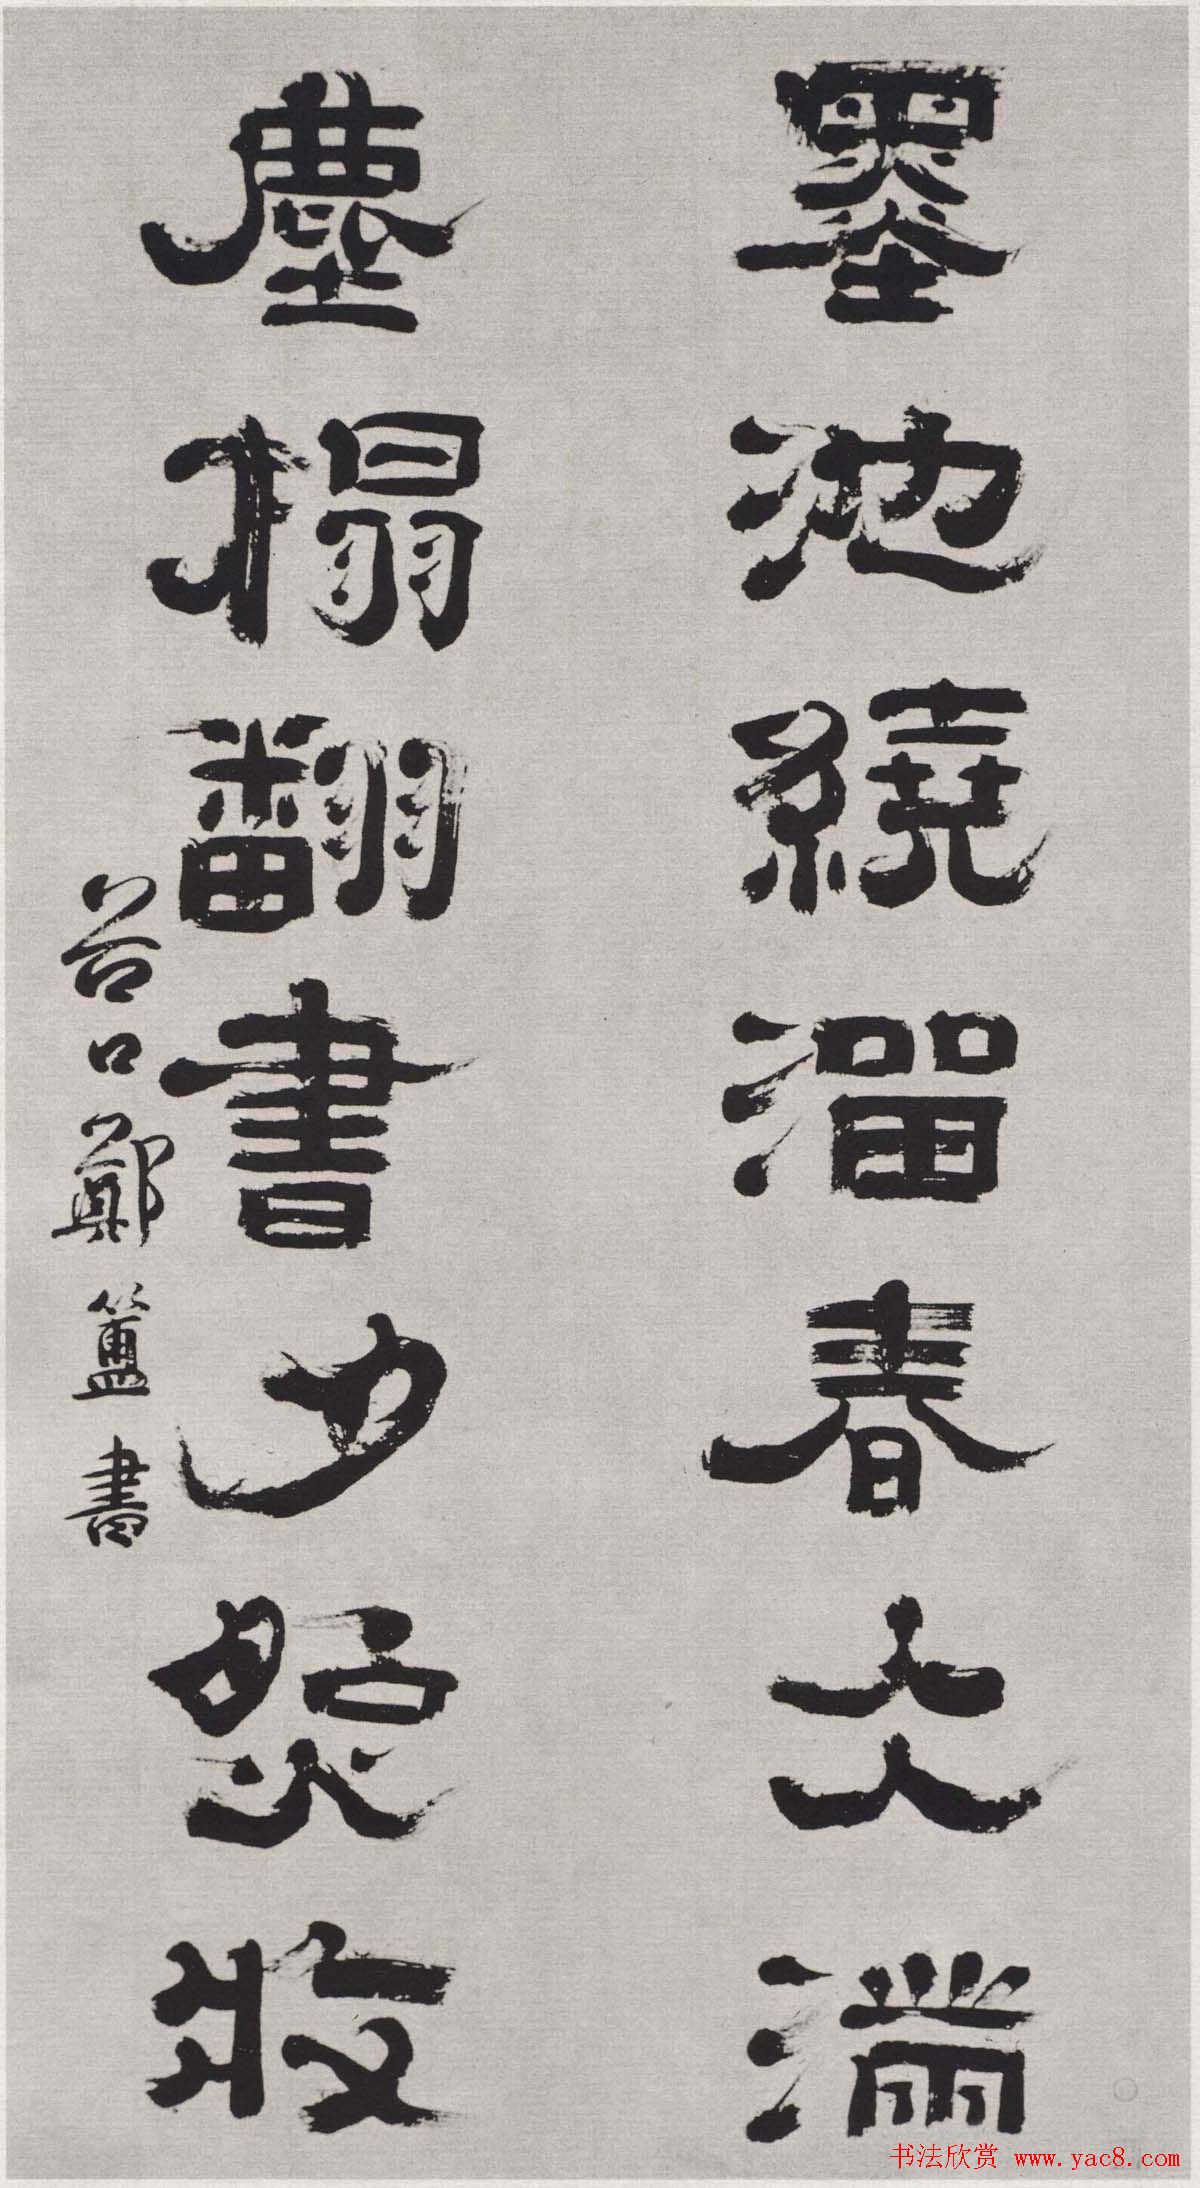 墨池繞溜春仌滿
塵榻翻書夕照收
谷口鄭簠書
书法欣赏 www.yac8.com